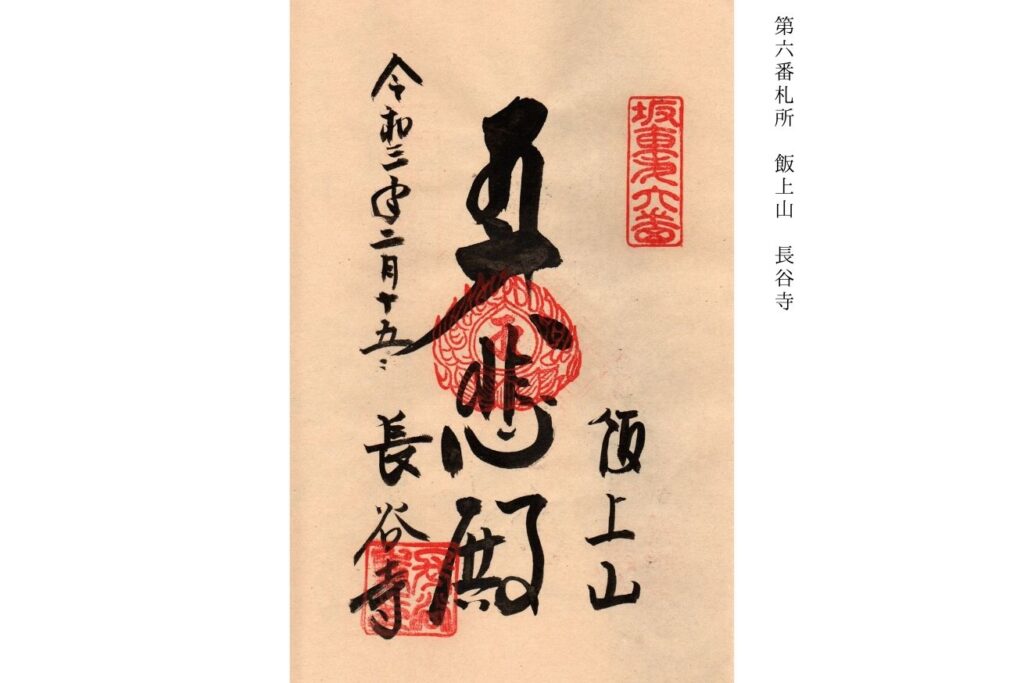 第六番札所　飯上山　長谷寺
坂東第六番
飯上山
大悲殿
令和三年二月十五日
長谷寺